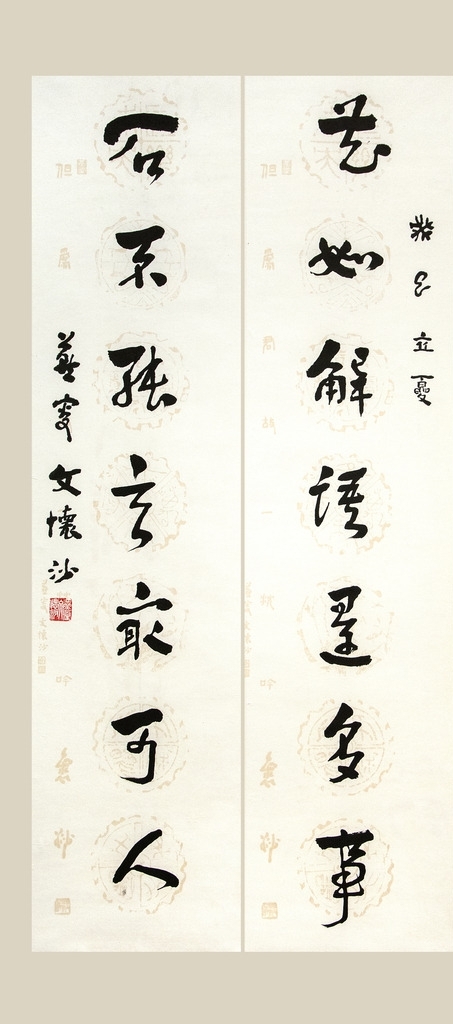 癸巳立夏
花如解語還多事
石不能言最可人
燕叟文懷沙